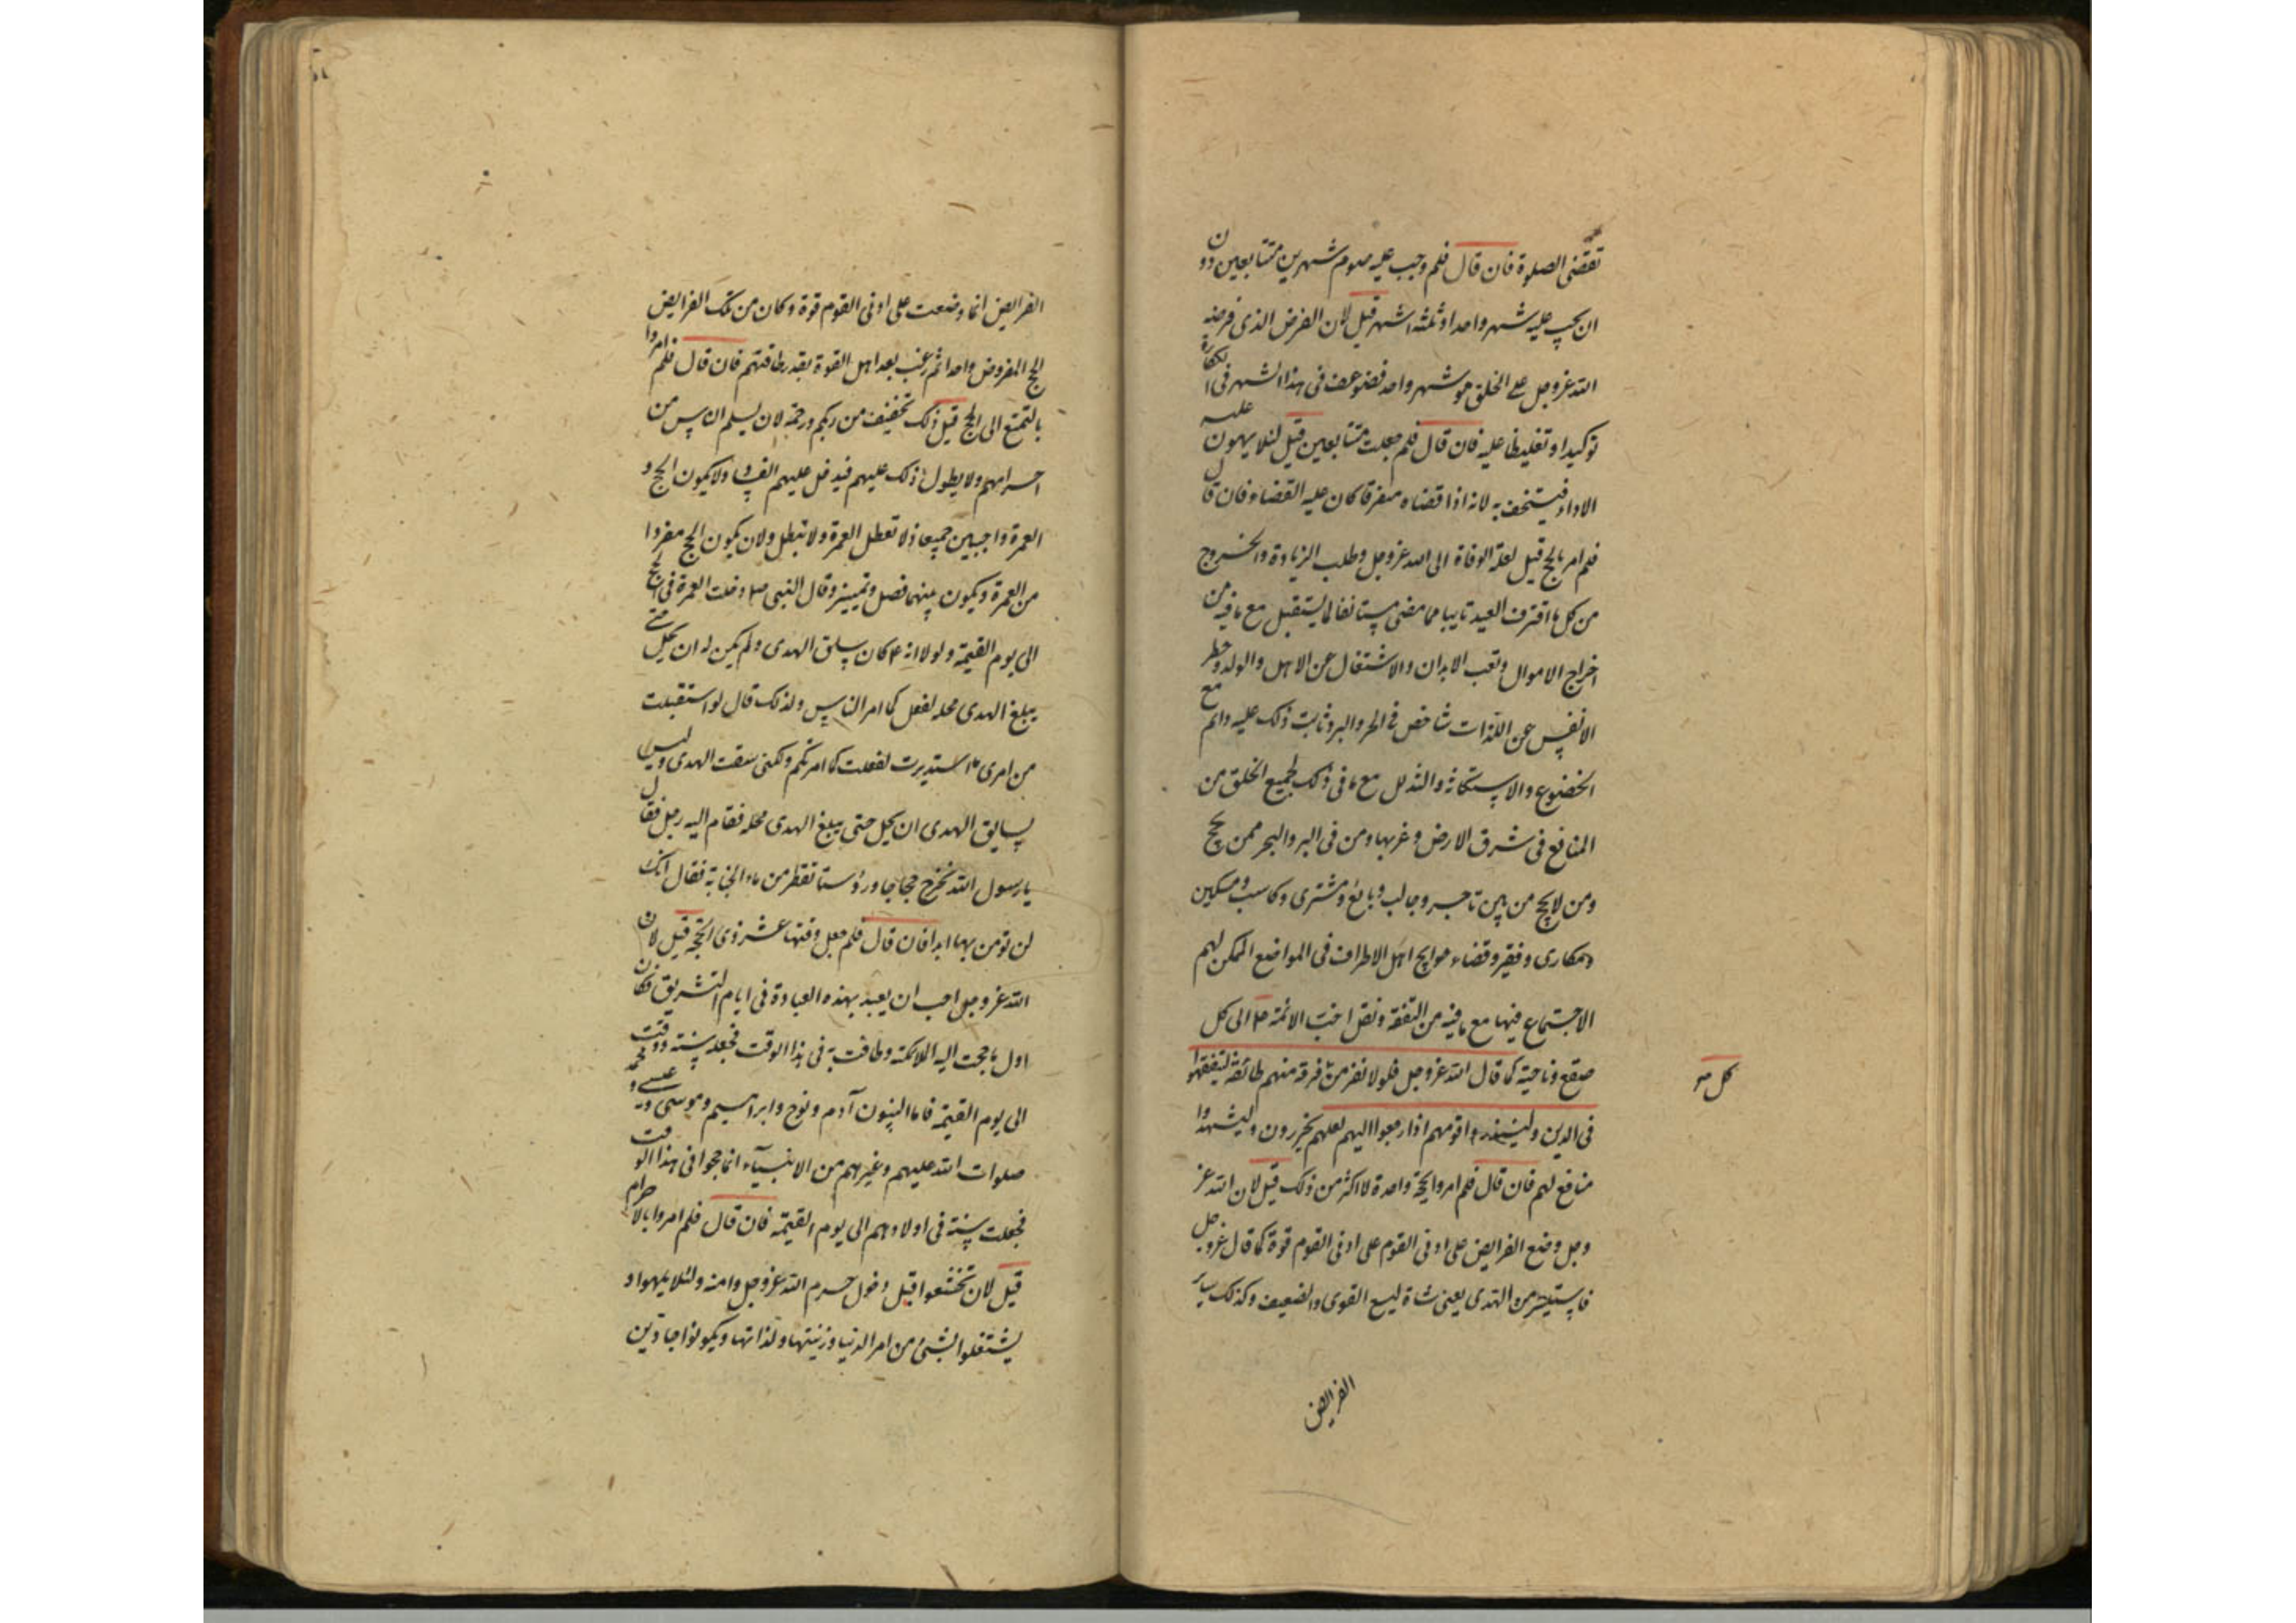 تقضى الصلوة فان قال فلم وجب عليه صوم شهرين متتابعين دون
ان يجب عليه شهر واحد او ثلثة اشهر قيل لان الفرض الذى فرضه
الله عز وجل على الخلق هو شهر واحد فضوعف فى هذا الشهر فى الكفارة
توكيدا وتغليظا عليه فان قال فلم جعلت متتابعين قيل لئلا يهون عليه
الاداء فيستخف به لانه اذا قضاه متفرقا كان عليه القضاء فان قال
فلم امر بالحج قيل لعلة الوفاة الى الله عز وجل وطلب الزيادة والخروج
من كل ما اقترف العبد تايبا مما مضى مستانفا لما يستقبل مع ما فيه من
اخراج الاموال وتعب الابدان والاشتغال عن الاهل والولد وحظر
الانفس عن اللذات شاخص فى الحر والبرد ثابت ذلك عليه دائم مع
الخضوع والاستكانة والتذلل مع ما فى ذلك لجميع الخلق من
المنافع فى شرق الارض وغربها ومن فى البر والبحر ممن يحج
ومن لا يحج من بين تاجر وجالب وبائع ومشترى وكاسب ومسكين
ومكارى وفقير وقضاء حوايج اهل الاطراف فى المواضع الممكن لهم
الاجتماع فيها مع ما فيه من التفقه ونقل اخبار الائمة ع الى كل
صقع وناحية كما قال الله عز وجل فلولا نفر من فرقة منهم طائفة ليتفقهوا
كل صح
فى الدين ولينذروا قومهم اذا رجعوا اليهم لعلهم يحذرون وليشهدوا
منافع لهم فان قال فلم امروا بحجة واحدة لا اكثر من ذلك قيل لان الله عز
وجل وضع الفرايض على ادنى القوم على ادنى القوم قوة كما قال عز وجل
فما ستيسر من الهدى يعنى شاة ليسع القوى والضعيف وكذلك ساير
الفرايض
الفرايض انما وضعت على ادنى القوم قوة وكان من تلك الفرايض
الحج المفروض واحدا ثم رغب بعد اهل القوة بقدر طاقتهم فان قال فلم امروا
بالتمتع الى الحج قيل ذلك تخفيف من ربكم ورحمة لان يسلم الناس من
احرامهم ولا يطول ذلك عليهم فيدخل عليهم الفساد ولا يكون الحج و
العمرة واجبين جميعا فلا تعطل العمرة ولا تبطل ولان يكون الحج مفردا
من العمرة ويكون بينهما فصل وتمييز وقال النبى ص دخلت العمرة فى الحج
الى يوم القيمة ولولا انه ع كان ساق الهدى ولم يكن له ان يحل حتى
يبلغ الهدى محله لفعل كما امر الناس ولذلك قال لو استقبلت
من امرى ما استدبرت لفعلت كما امرتكم ولكنى سقت الهدى وليس
لسايق الهدى ان يحل حتى يبلغ الهدى محله فقام اليه رجل فقال
يا رسول الله نخرج حجاجا ورؤسنا تقطر من ماء الجنابة فقال انك
لن تومن بها ابدا فان قال فلم جعل وقتها عشر ذى الحجة قيل لان
الله عز وجل احب ان يعبد بهذه العبادة فى ايام التشريق فكان
اول ما حجت اليه الملائكة وطافت به فى هذا الوقت فجعله سنة ووقت
الى يوم القيمة فاما النبيون آدم ونوح وابراهيم وموسى وعيسى ومحمد
صلوات الله عليهم وغيرهم من الانبياء انما حجوا فى هذا الوقت
فجعلت سنة فى اولادهم الى يوم القيمة فان قال فلم امروا بالاحرام
قيل لان تخشعوا قبل دخول حرم الله عز وجل وامنه ولئلا يلهوا و
يشتغلوا بشئ من امر الدنيا وزينتها ولذاتها ويكونوا جادين